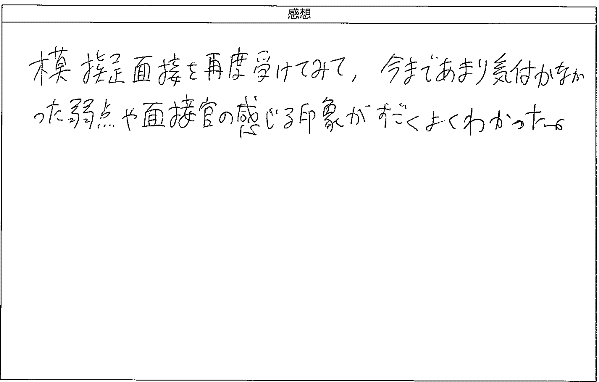 感想
模擬面接を再度受けてみて、今まであまり気付かなか
った弱点や面接官の感じる印象がすごくよくわかった。